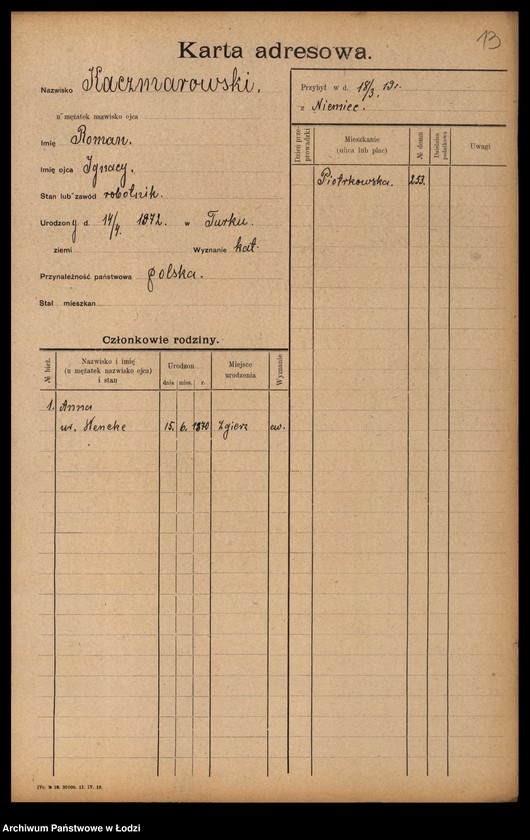 13
Karta adresowa.
Nazwisko Kaczmarowski.
u mężatek nazwisko ojca
Imię Roman.
Imię ojca Ignacy.
Stan lub zawód robotnik.
Urodzony d. 14/4. 1872. w Turku.
ziemi Wyznanie kat.
Przynależność państwowa polska.
Stał mieszkan
Przybył w d. 18/3. 19r.
z Niemiec.
Dzień przeprowadzki
Mieszkanie
(ulica lub plac)
№ domu
Dzielnica podatkowa
Uwagi
Piotrkowska. 253.
Członkowie rodziny.
№ bież.
Nazwisko i imię
(u mężatek nazwisko ojca)
i stan
Urodzon
dnia mies. r.
Miejsce
urodzenia
Wyznanie
1. Anna
ur. Hencke 15. 6. 1870 Zgierz ew.
Archiwum Państwowe w Łodzi